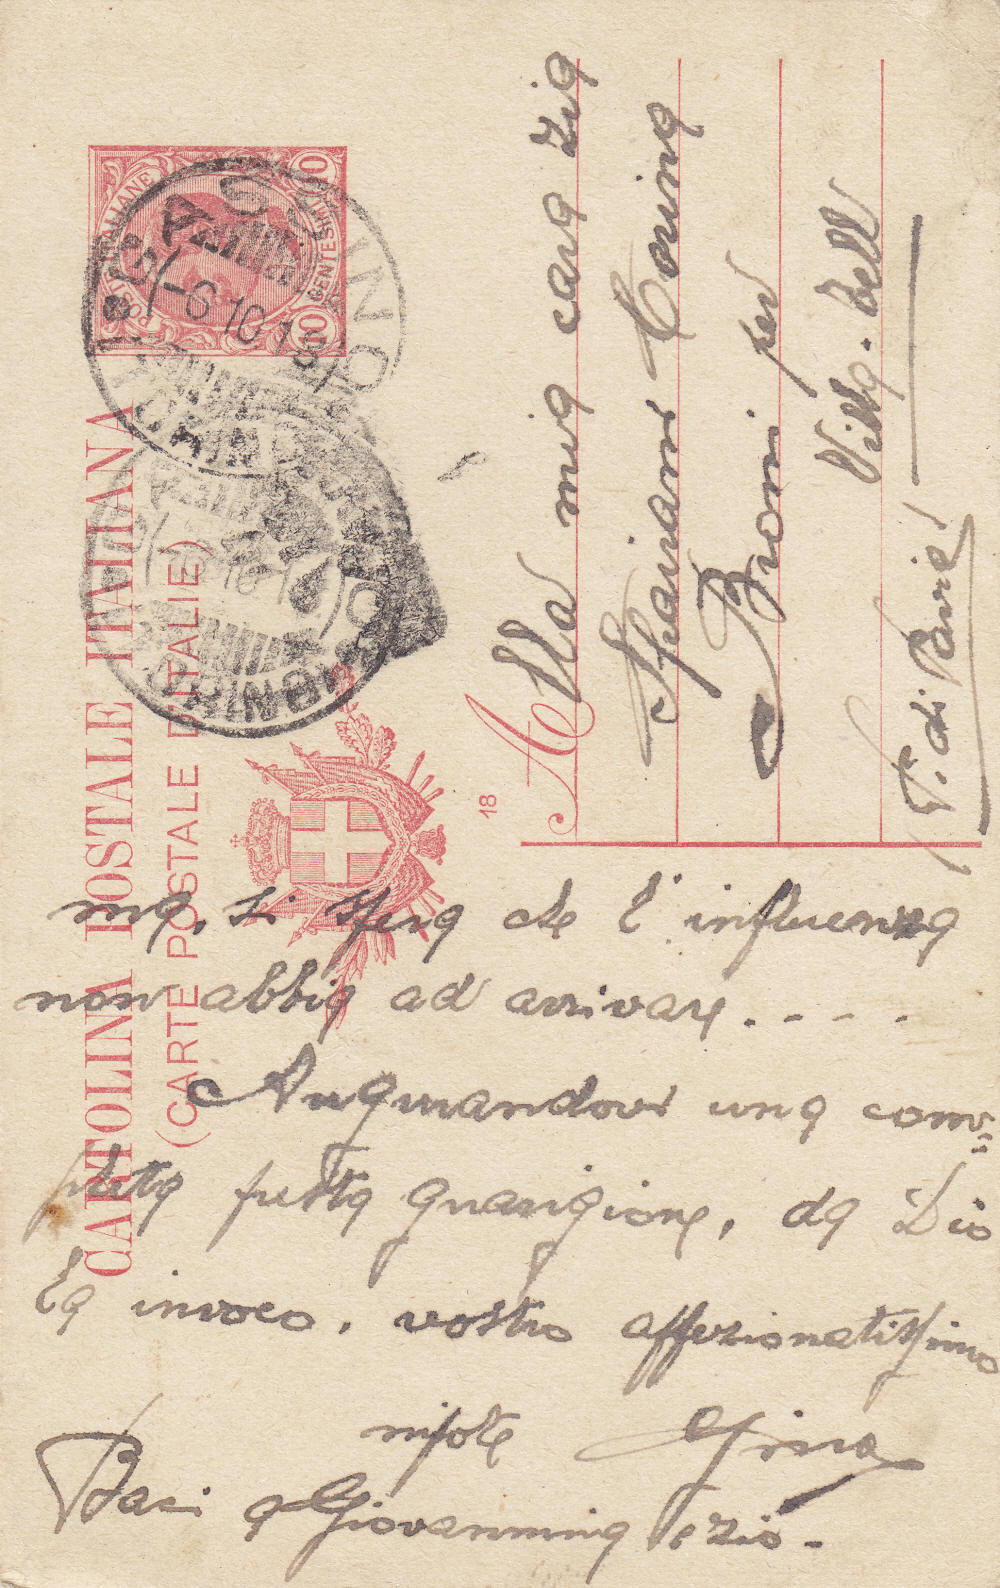 CARTOLINA POSTALE ITALIANA
(CARTE POSTALE D'ITALIE)
POSTE ITALIANE
10 CENTESIMI 10
TORINO
-6 10 18
TORINO
18
Alla mia cara zia
Sfeziani Corina
Broni per
Villa. Bell
P. di Pavia
ma, si spera che l'influenza
non abbia ad arrivare. . . .
Augurandovi una com=
pleta presta guarigione, da Dio
la invoco, vostro affezionatissimo
nipote Gino
Baci a Giovannina e zio.